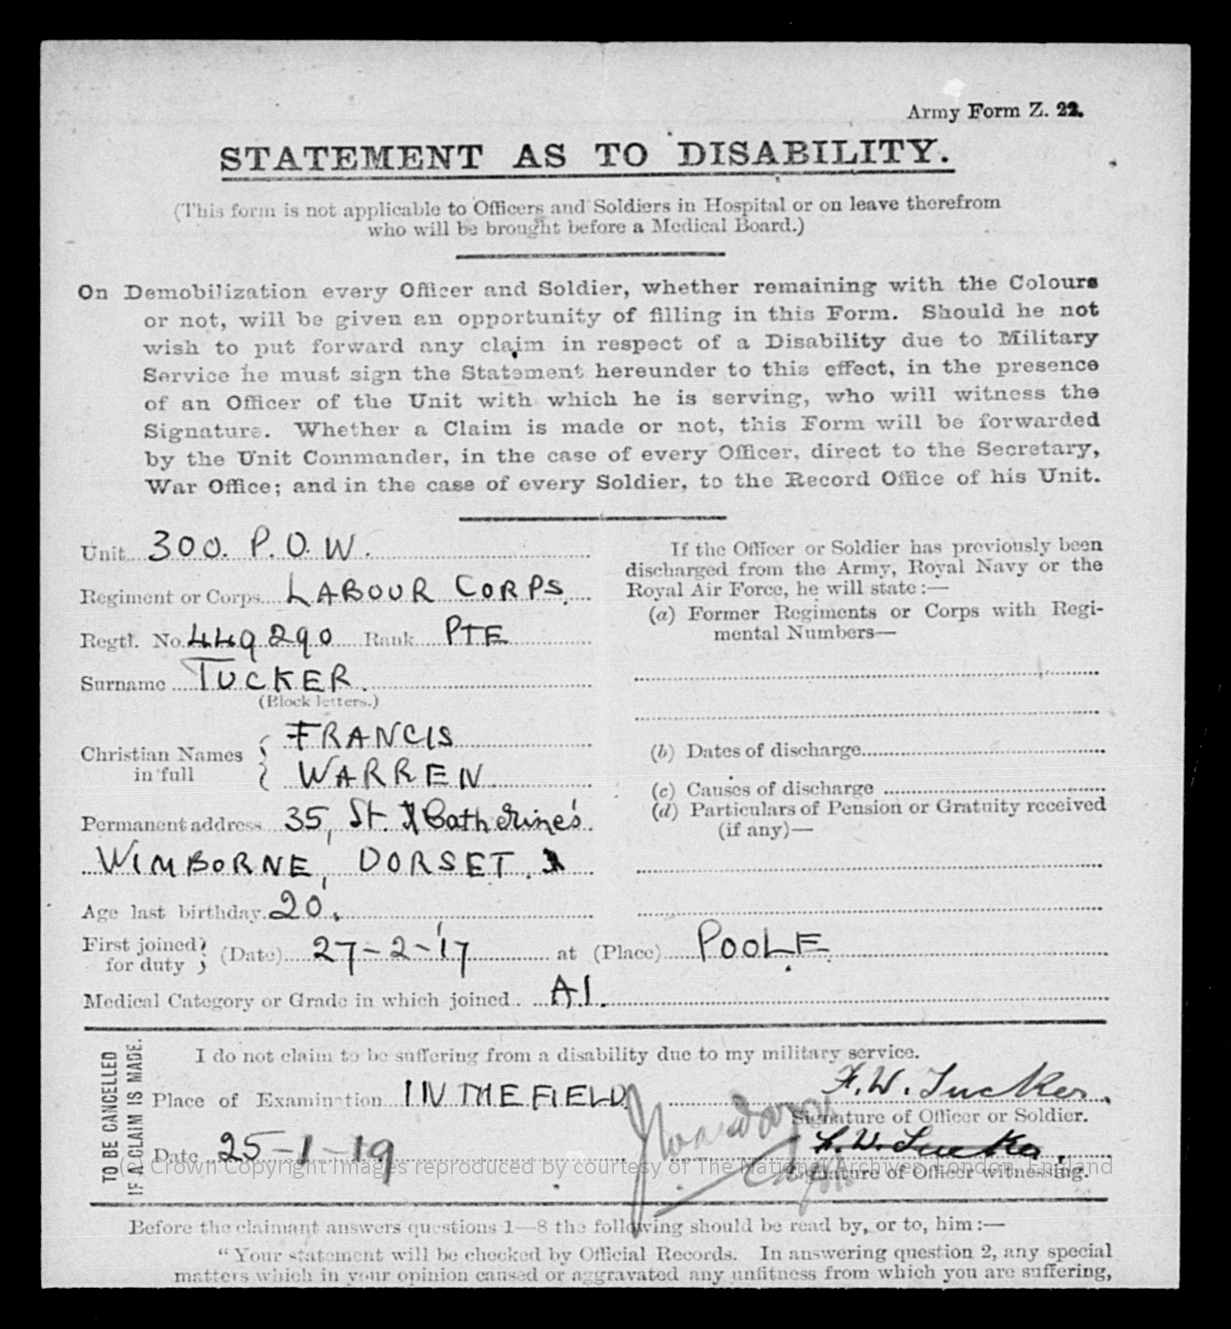 Army Form Z. 22.
STATEMENT AS TO DISABILITY.
(This form is not applicable to Officers and Soldiers in Hospital or on leave therefrom
who will be brought before a Medical Board.)
On Demobilization every Officer and Soldier, whether remaining with the Colours
or not, will be given an opportunity of filling in this Form. Should he not
wish to put forward any claim in respect of a Disability due to Military
Service he must sign the Statement hereunder to this effect, in the presence
of an Officer of the Unit with which he is serving, who will witness the
Signature. Whether a Claim is made or not, this Form will be forwarded
by the Unit Commander, in the case of every Officer, direct to the Secretary,
War Office; and in the case of every Soldier, to the Record Office of his Unit.
Unit 300. P.O.W.
Regiment or Corps LABOUR CORPS.
Regtl. No. 449290 Rank PTE
Surname TUCKER.
(Block letters.)
Christian Names in full { FRANCIS
WARREN
Permanent address 35, St. Catherine's
WIMBORNE, DORSET.
Age last birthday 20.
If the Officer or Soldier has previously been
discharged from the Army, Royal Navy or the
Royal Air Force, he will state :—
(a) Former Regiments or Corps with Regi-
mental Numbers—
(b) Dates of discharge
(c) Causes of discharge
(d) Particulars of Pension or Gratuity received
(if any)—
First joined for duty } (Date) 27-2-'17 at (Place) POOLE
Medical Category or Grade in which joined A1.
TO BE CANCELLED
IF A CLAIM IS MADE.
I do not claim to be suffering from a disability due to my military service.
F. W. Tucker.
Place of Examination IN THE FIELD
Signature of Officer or Soldier.
F. W. Tucker.
Date 25-1-19
Signature of Officer witnessing.
(c) Crown Copyright Images reproduced by courtesy of The National Archives, London, England
Before the claimant answers questions 1—8 the following should be read by, or to, him :—
"Your statement will be checked by Official Records. In answering question 2, any special
matters which in your opinion caused or aggravated any unfitness from which you are suffering,